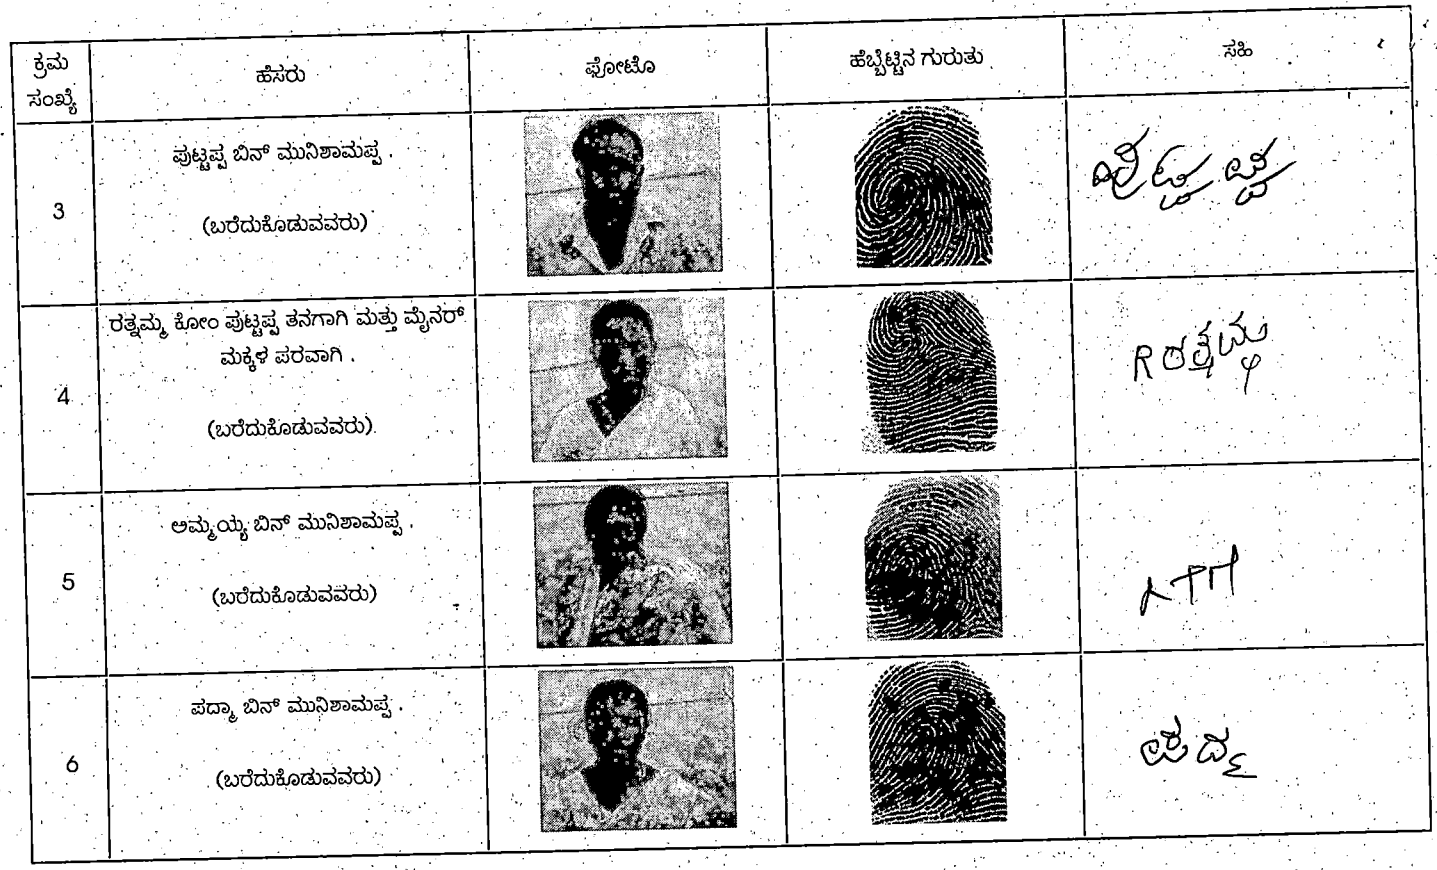 ಕ್ರಮ ಸಂಖ್ಯೆ ಹೆಸರು ಫೋಟೊ ಹೆಬ್ಬೆಟ್ಟಿನ ಗುರುತು ಸಹಿ
3 ಪುಟ್ಟಪ್ಪ ಬಿನ್ ಮುನಿಶಾಮಪ್ಪ .
(ಬರೆದುಕೊಡುವವರು)
ರತ್ನಮ್ಮ ಕೋಂ ಪುಟ್ಟಪ್ಪ ತನಗಾಗಿ ಮತ್ತು ಮೈನರ್
ಮಕ್ಕಳ ಪರವಾಗಿ .
4
(ಬರೆದುಕೊಡುವವರು)
R ರತ್ನಮ್ಮ
5 ಅಮ್ಮಯ್ಯ ಬಿನ್ ಮುನಿಶಾಮಪ್ಪ .
(ಬರೆದುಕೊಡುವವರು)
6 ಪದ್ಮಾ ಬಿನ್ ಮುನಿಶಾಮಪ್ಪ .
(ಬರೆದುಕೊಡುವವರು)